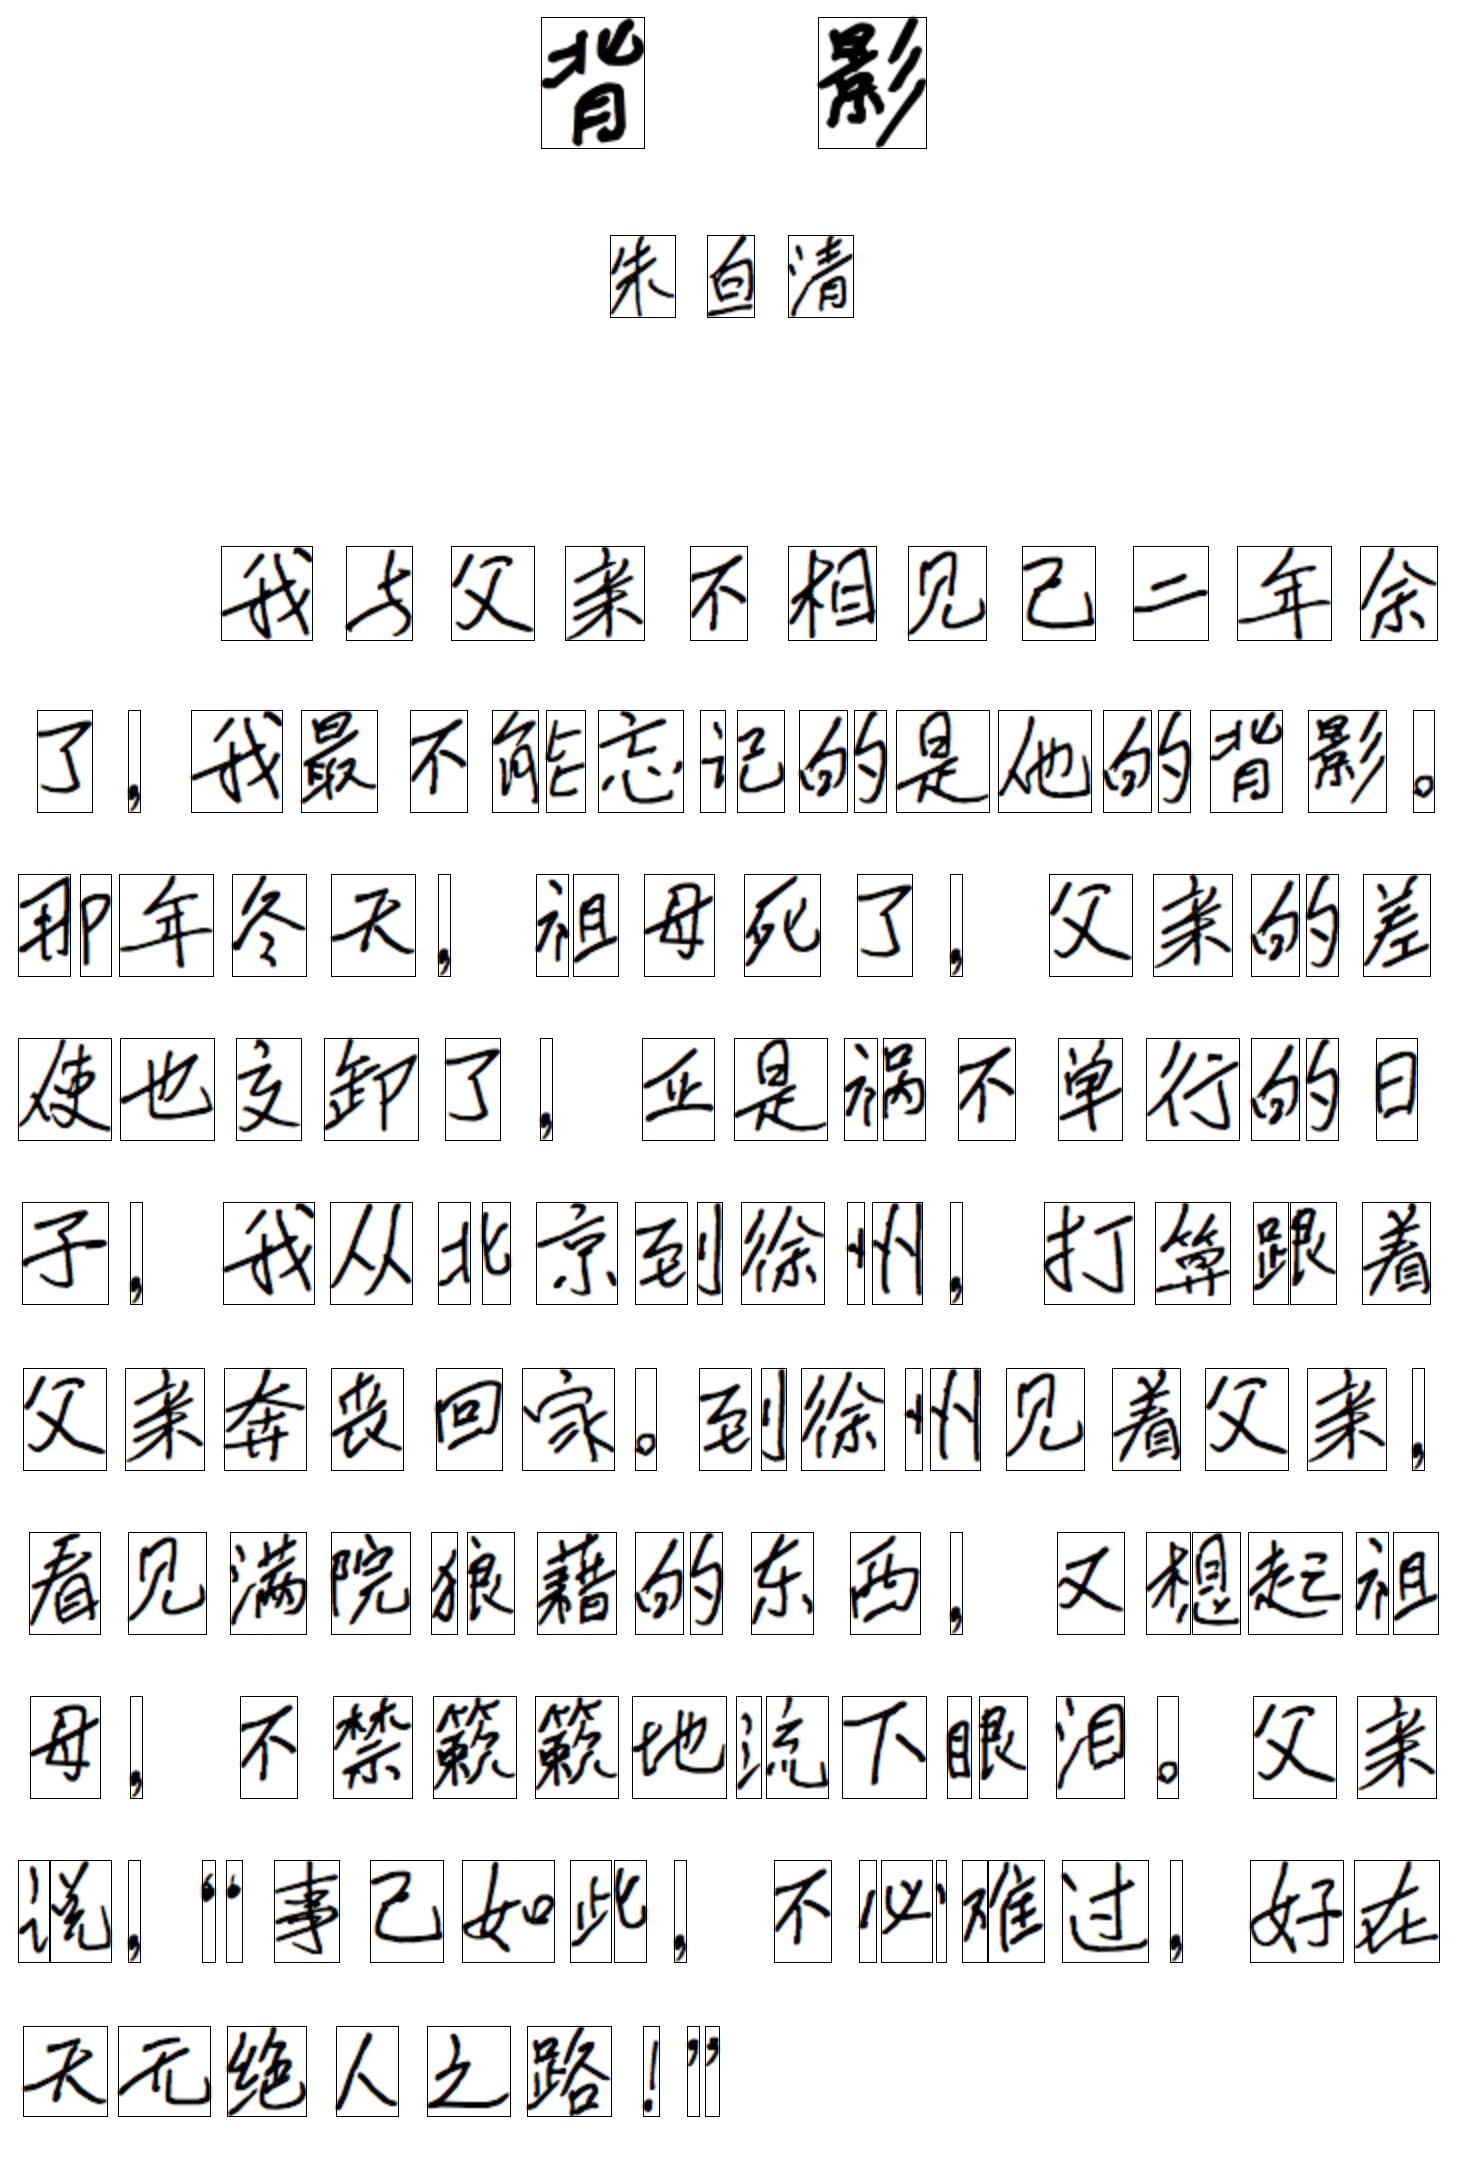 背影
朱自清
我与父亲不相见已二年余
了，我最不能忘记的是他的背影。
那年冬天，祖母死了，父亲的差
使也交卸了，正是祸不单行的日
子，我从北京到徐州，打算跟着
父亲奔丧回家。到徐州见着父亲，
看见满院狼藉的东西，又想起祖
母，不禁簌簌地流下眼泪。父亲
说，“事已如此，不必难过，好在
天无绝人之路！”